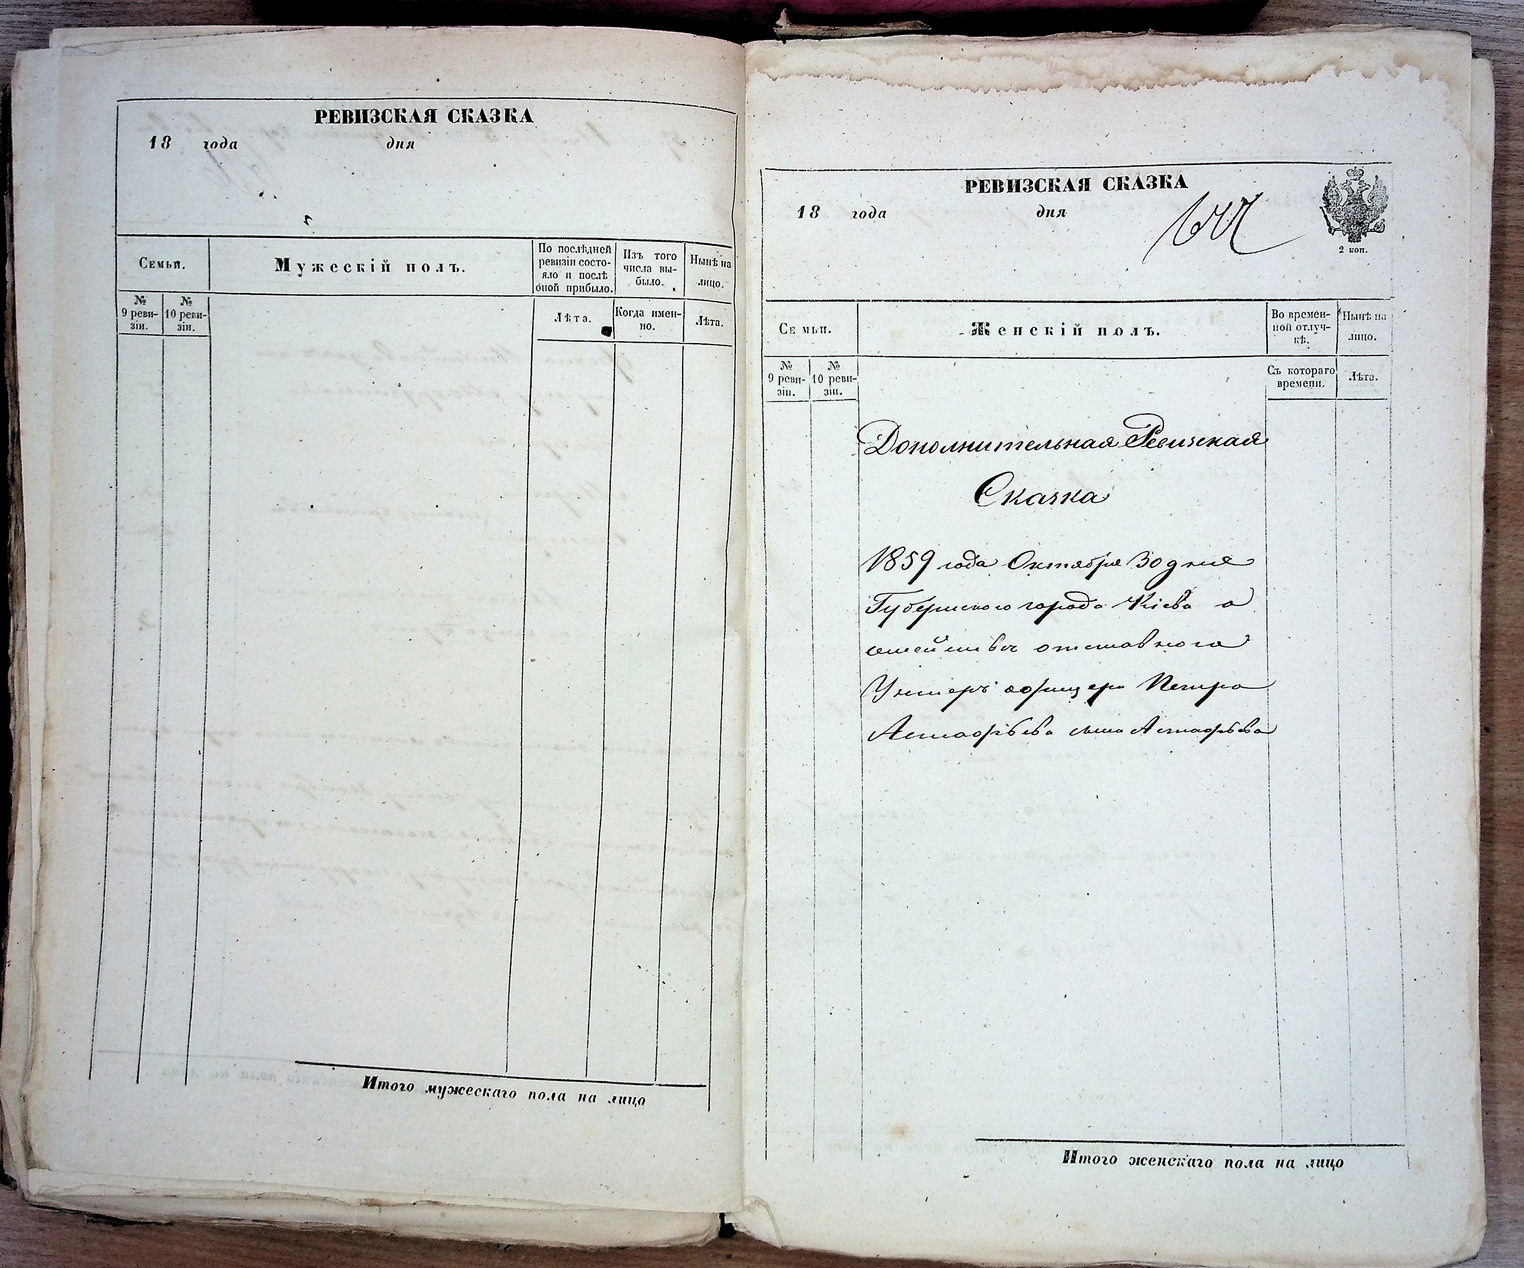 РЕВИЗСКАЯ СКАЗКА
18 года дня
Семьи.
Мужескій полъ.
По послѣдней ревизіи состо-
яло и послѣ
оной прибыло.
Изъ того
числа вы-
было.
Нынѣ на
лицо.
№
9 реви-
зіи.
№
10 реви-
зіи.
Лѣта.
Когда имен-
но.
Лѣта.
Итого мужескаго пола на лицо
РЕВИЗСКАЯ СКАЗКА
18 года дня
2 коп.
Семьи.
Женскій полъ.
Во времен-
ной отлуч-
кѣ.
Нынѣ на
лицо.
№
9 реви-
зіи.
№
10 реви-
зіи.
Съ котораго
времени.
Лѣта.
Дополнительная Ревизская
Сказка
1859 года Октября 30 дня
Губернского города Кіева о
семействѣ отставного
Унтеръ офицера Петра
Астафьева сына Астафьева
Итого женскаго пола на лицо